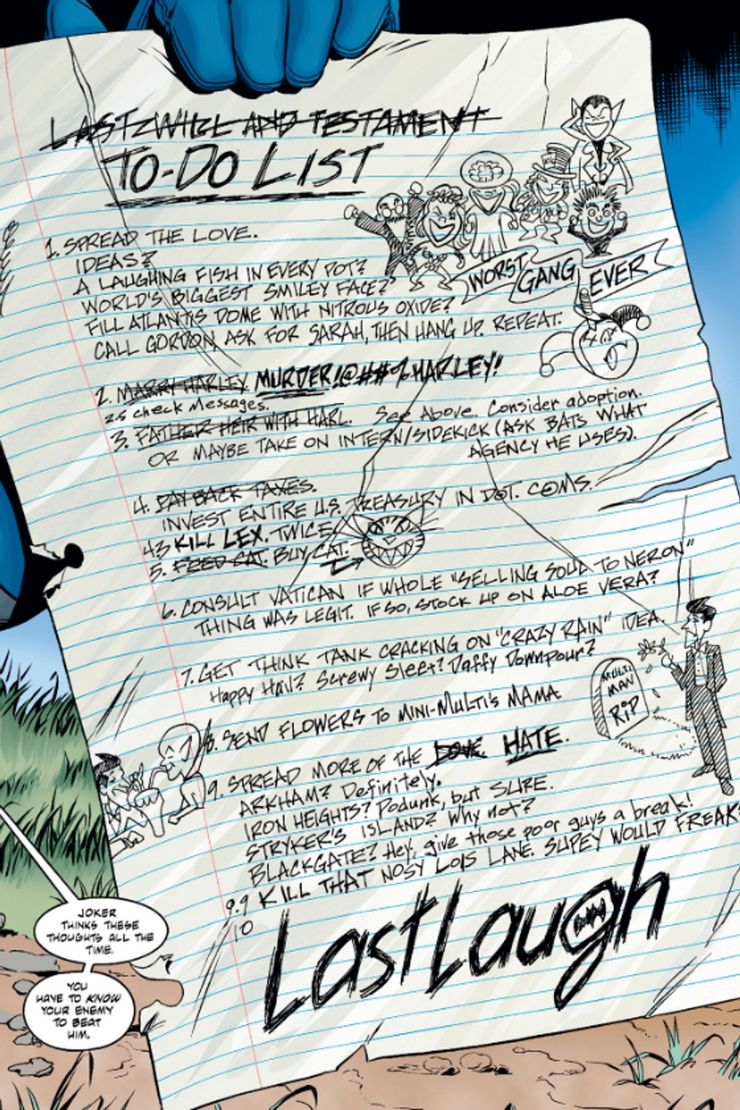 LAST WILL AND TESTAMENT
TO-DO LIST
1. SPREAD THE LOVE.
IDEAS?
A LAUGHING FISH IN EVERY POT?
WORLD'S BIGGEST SMILEY FACE?
FILL ATLANTIS DOME WITH NITROUS OXIDE?
CALL GORDON, ASK FOR SARAH, THEN HANG UP. REPEAT.
WORST GANG EVER
2. MARRY HARLEY. MURDER !@##% HARLEY!
2.5 check messages.
3. FATHER HEIR WITH HARL. See Above. Consider adoption.
OR MAYBE TAKE ON INTERN/SIDEKICK (ASK BATS WHAT
AGENCY HE USES).
4. PAY BACK TAXES.
INVEST ENTIRE U.S. TREASURY IN DOT. COMS.
43 KILL LEX. TWICE.
5. FEED CAT. BUY CAT.
6. CONSULT VATICAN IF WHOLE "SELLING SOUL TO NERON"
THING WAS LEGIT. IF SO, STOCK UP ON ALOE VERA?
7. GET THINK TANK CRACKING ON "CRAZY RAIN" IDEA.
Happy Hail? Screwy Sleet? Daffy Downpour?
MULTI
MAN
RIP
8. SEND FLOWERS TO MINI-MULTI'S MAMA
9. SPREAD MORE OF THE LOVE. HATE.
ARKHAM? Definitely.
IRON HEIGHTS? Podunk, but SURE.
STRYKER'S ISLAND? Why not?
BLACKGATE? Hey, give those poor guys a break!
9.9 KILL THAT NOSY LOIS LANE. SUPEY WOULD FREAK
10
Last Laugh
JOKER
THINKS THESE
THOUGHTS ALL THE
TIME.
YOU
HAVE TO KNOW
YOUR ENEMY
TO BEAT
HIM.